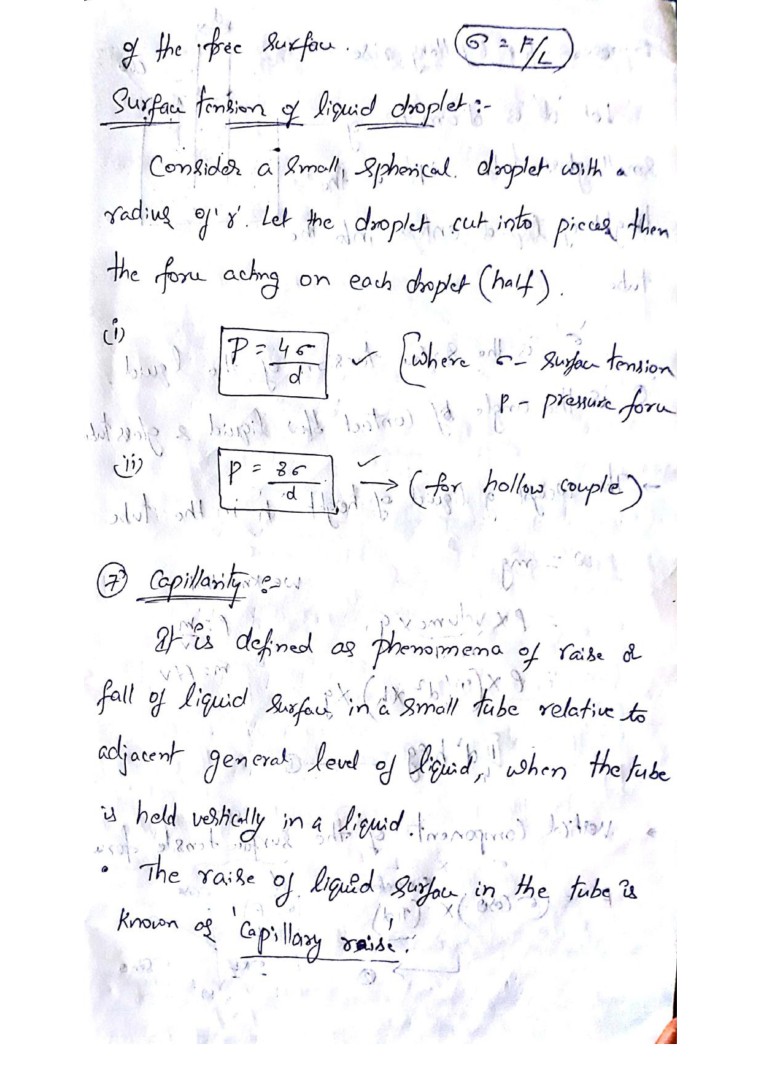 of the free surface. σ = F/L
Surface tension of liquid droplet :-
Consider a small, spherical droplet with a
radius of 'r'. Let the droplet cut into pieces then
the force acting on each droplet (half).
(i) P = 4σ/d ✓ [where σ - surface tension
P - pressure force
(ii) P = 8σ/d ✓ → (for hollow couple)
⑦ Capillarity :-
It is defined as phenomena of raise &
fall of liquid surface in a small tube relative to
adjacent general level of liquid, when the tube
is held vertically in a liquid.
• The raise of liquid surface in the tube is
known as 'Capillary raise'.